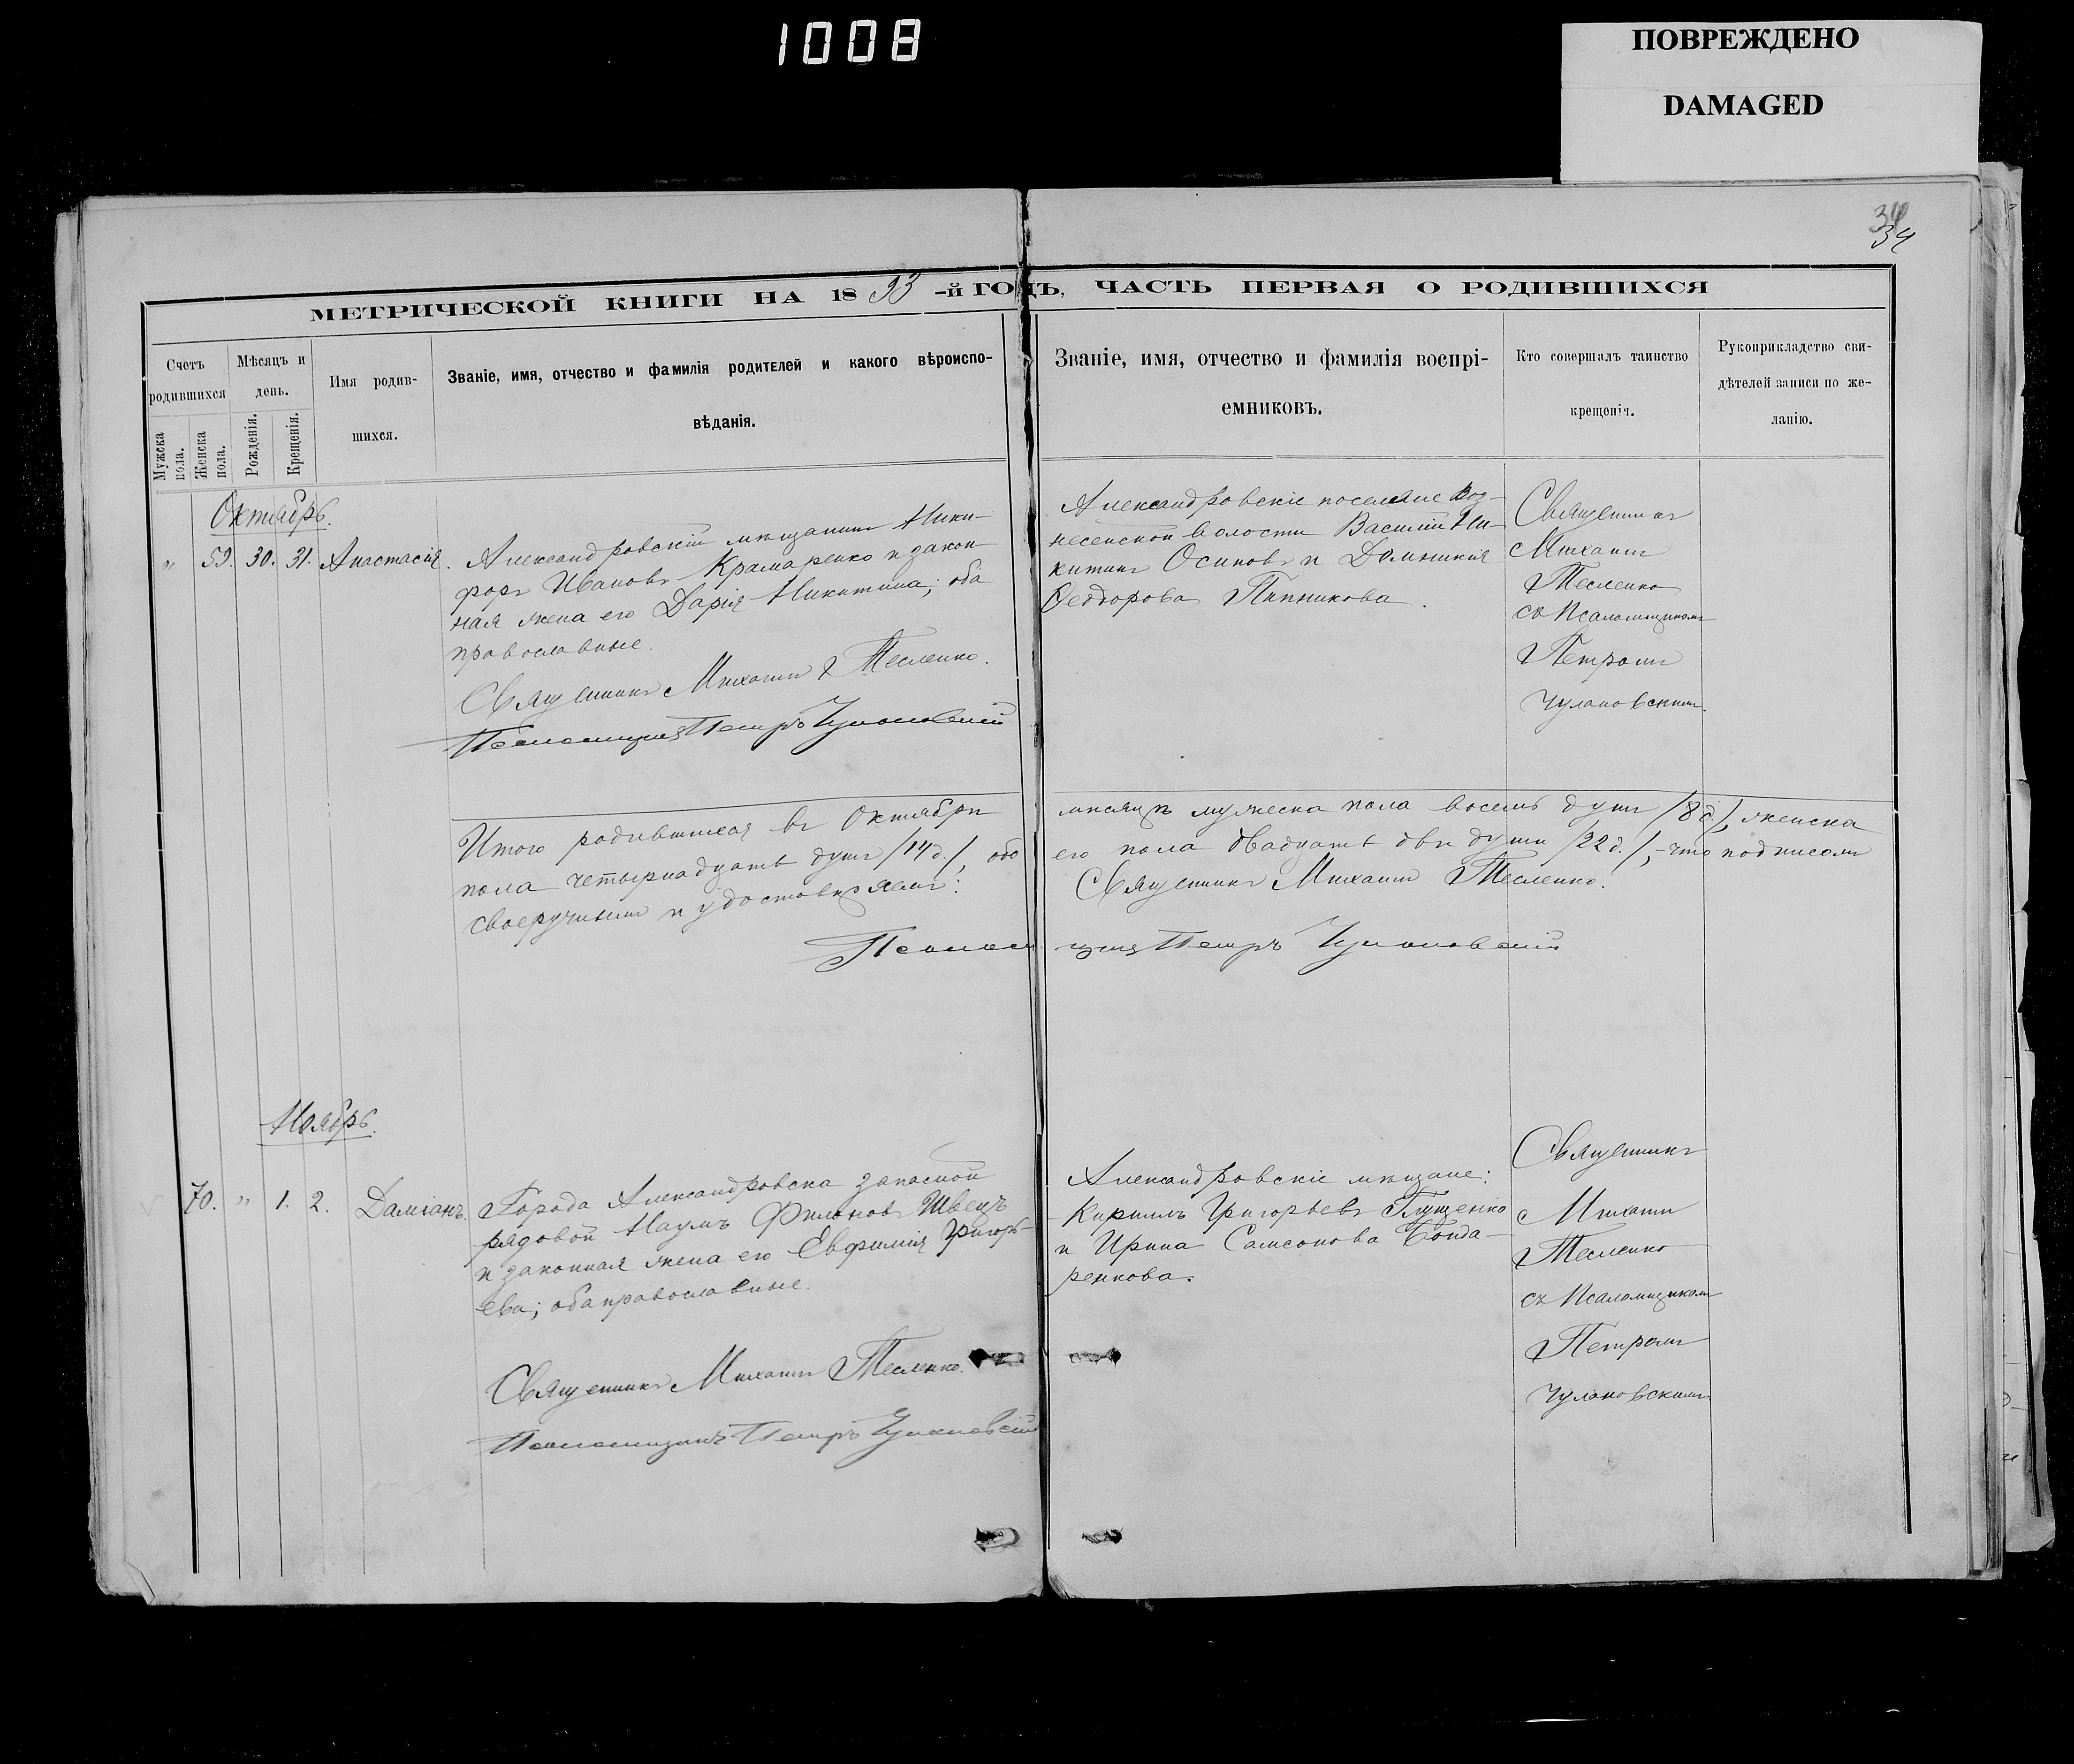 1008
ПОВРЕЖДЕНО
DAMAGED
34
34
МЕТРИЧЕСКОЙ КНИГИ НА 1893-й ГОДЪ, ЧАСТЬ ПЕРВАЯ О РОДИВШИХСЯ
Счетъ родившихся
Мужеска пола.
Женска пола.
Мѣсяцъ и день.
Рожденія.
Крещенія.
Имя родив-
шихся.
Званіе, имя, отчество и фамилія родителей и какого вѣроиспо-
вѣданія.
Званіе, имя, отчество и фамилія воспрі-
емниковъ.
Кто совершалъ таинство
крещенія.
Рукоприкладство сви-
дѣтелей записи по же-
ланію.
Октябрь.
" 59. 30. 31. Анастасія.
Александровскій мѣщанинъ Ники-
форъ Ивановъ Крамаренко и закон-
ная жена его Дарія Никитина; оба
православные.
Священникъ Михаилъ Тесленко.
Псаломщикъ Петръ Чулановскій
Александровскіе поселяне Воз-
несенской волости Василій Ни-
китинъ Осиповъ и Домникія
Ѳеодорова Пипникова.
Священникъ
Михаилъ
Тесленко
съ Псаломщикомъ
Петромъ
Чулановскимъ.
Итого родившихся въ Октябрѣ мѣсяцѣ мужеска пола восемь душъ /8 д./, женска
пола четырнадцать душъ /14 д./, обо его пола двадцать двѣ души /22 д./, – что подписомъ
своеручнымъ и удостовѣряемъ: Священникъ Михаилъ Тесленко.
Псаломщикъ Петръ Чулановскій
Ноябрь.
70. " 1. 2. Даміанъ.
Города Александровска запасной
рядовой Наумъ Филоновъ Швецъ
и законная жена его Евфимія Григорь-
ева; оба православные.
Священникъ Михаилъ Тесленко.
Псаломщикъ Петръ Чулановскій
Александровскіе мѣщане:
Кириллъ Григорьевъ Глущенко
и Ирина Самсонова Бонда-
ренкова.
Священникъ
Михаилъ
Тесленко
съ Псаломщикомъ
Петромъ
Чулановскимъ.